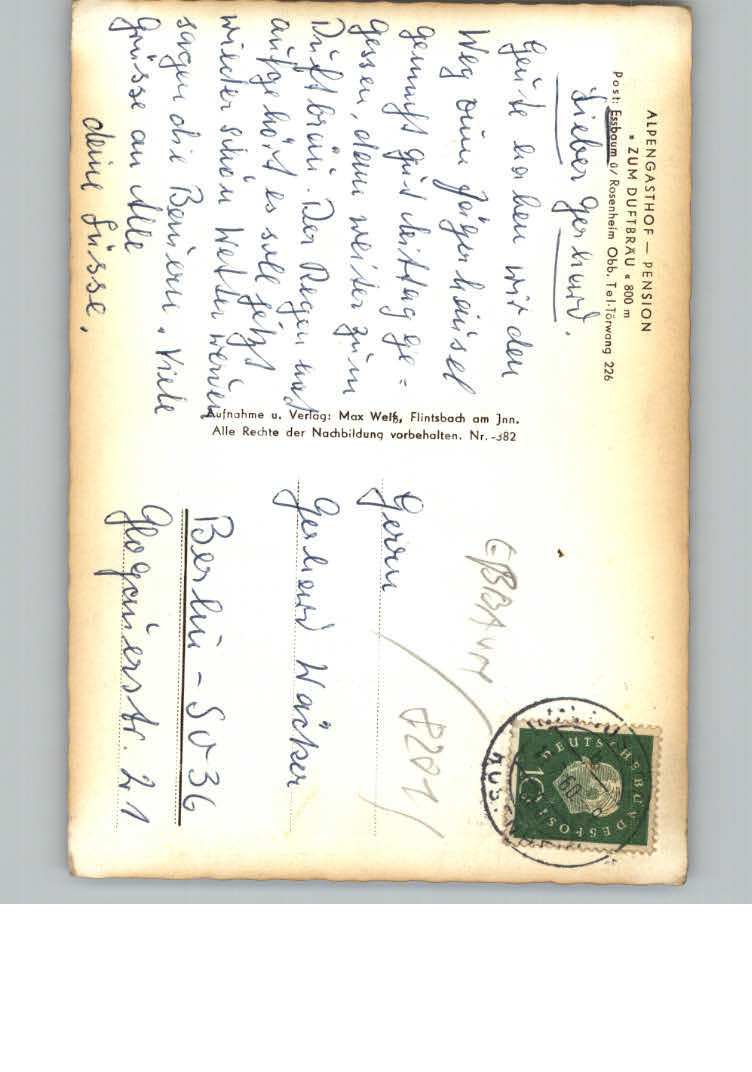 ALPENGASTHOF — PENSION
» ZUM DUFTBRÄU « 800 m
Post: Essbaum ü/ Rosenheim Obb. Tel. Törwang 226
Lieber Gerhard.
Heute haben wir den
Weg zum Jägerhäusel
gemacht gut Mittag ge=
gessen, dann weiter zum
Duftbräu. Der Regen hat
aufgehört es soll jetzt
wieder schön Wetter werden
sagen die Bauern. Viele
Grüsse an Alle
deine
Aufnahme u. Verlag: Max Weiß, Flintsbach am Jnn.
Alle Rechte der Nachbildung vorbehalten. Nr. -382
EßBAUM
8201
DEUTSCHE BUNDESPOST
10
Herrn
Gerhard Wäcker
Berlin - SO 36
Glogauerstr. 21